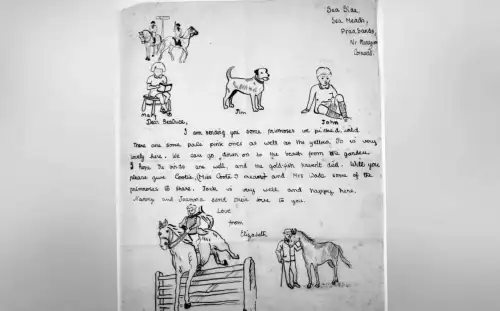 Sea Side,
Sea Meads,
Praa Sands,
Nr
Cornwall.
Mary
Jim
John
Dear Beatrice,
I am sending you some primroses we picked wild
There are some pale pink ones as well as the yellow. It is very
lovely here. We can go down on to the beach from the garden
I hope the birds are well, and the gold-fish haven't died. Will you
please give Cootie (Miss Coote I mean) and Mrs Wade some of the
primroses to share. Jack is very well and happy here.
Nanny and Joanna send their love to you.
Love
from
Elizabeth